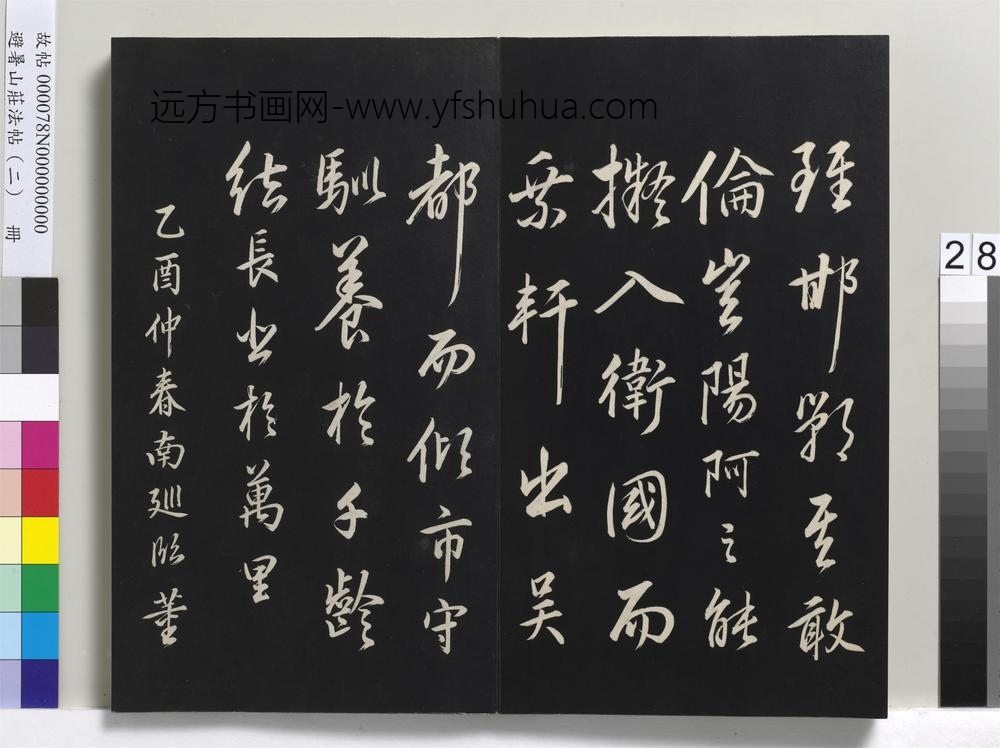 远方书画网-www.yfshuhua.com
雖邯鄲其敢
倫豈陽阿之能
擬入衛國而
乘軒出吳
都而傾市守
馴養於千齡
結長悲於萬里
乙酉仲春南巡臨董
故帖 000078N000000000
避暑山莊法帖(二) 冊
28